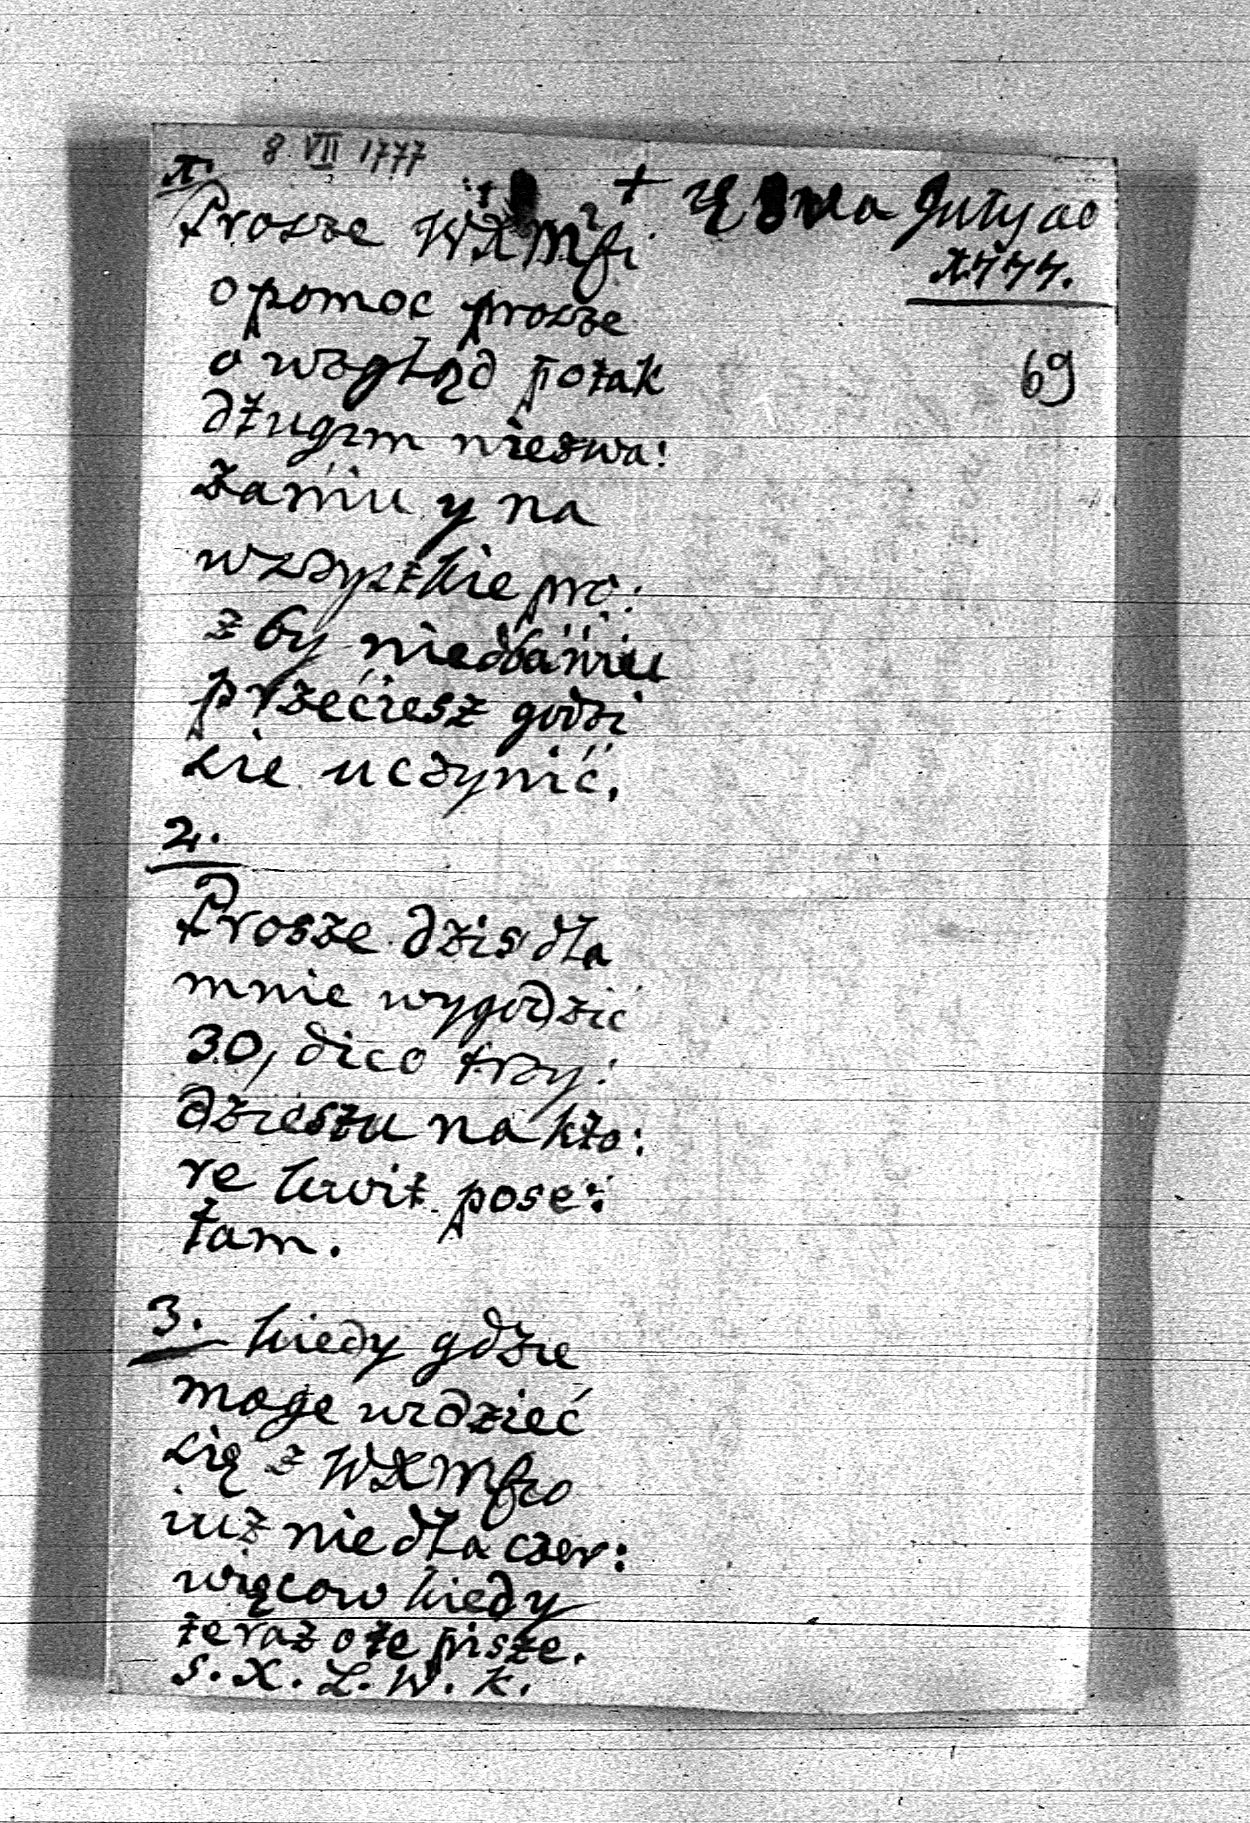 8 VII 1777
+ 8 Julij ao
1777.
69
1.
Prosze WXMści
o pomoc prosze
o wzgląd potak
długim niezwa:
żaniu y na
wszyszkie pro:
zby niedbaniu
przećiesz godzi
sie uczynić.
2.
Prosze dzis dla
mnie wygodzić
30, dico trzy:
dziestu na kto:
re kwit pose:
łam.
3. kiedy gdzie
moge widzieć
się z WXMścio
iuż nie dla czer:
więcow kiedy
teraz o te pisze.
S. X. L. W. K.